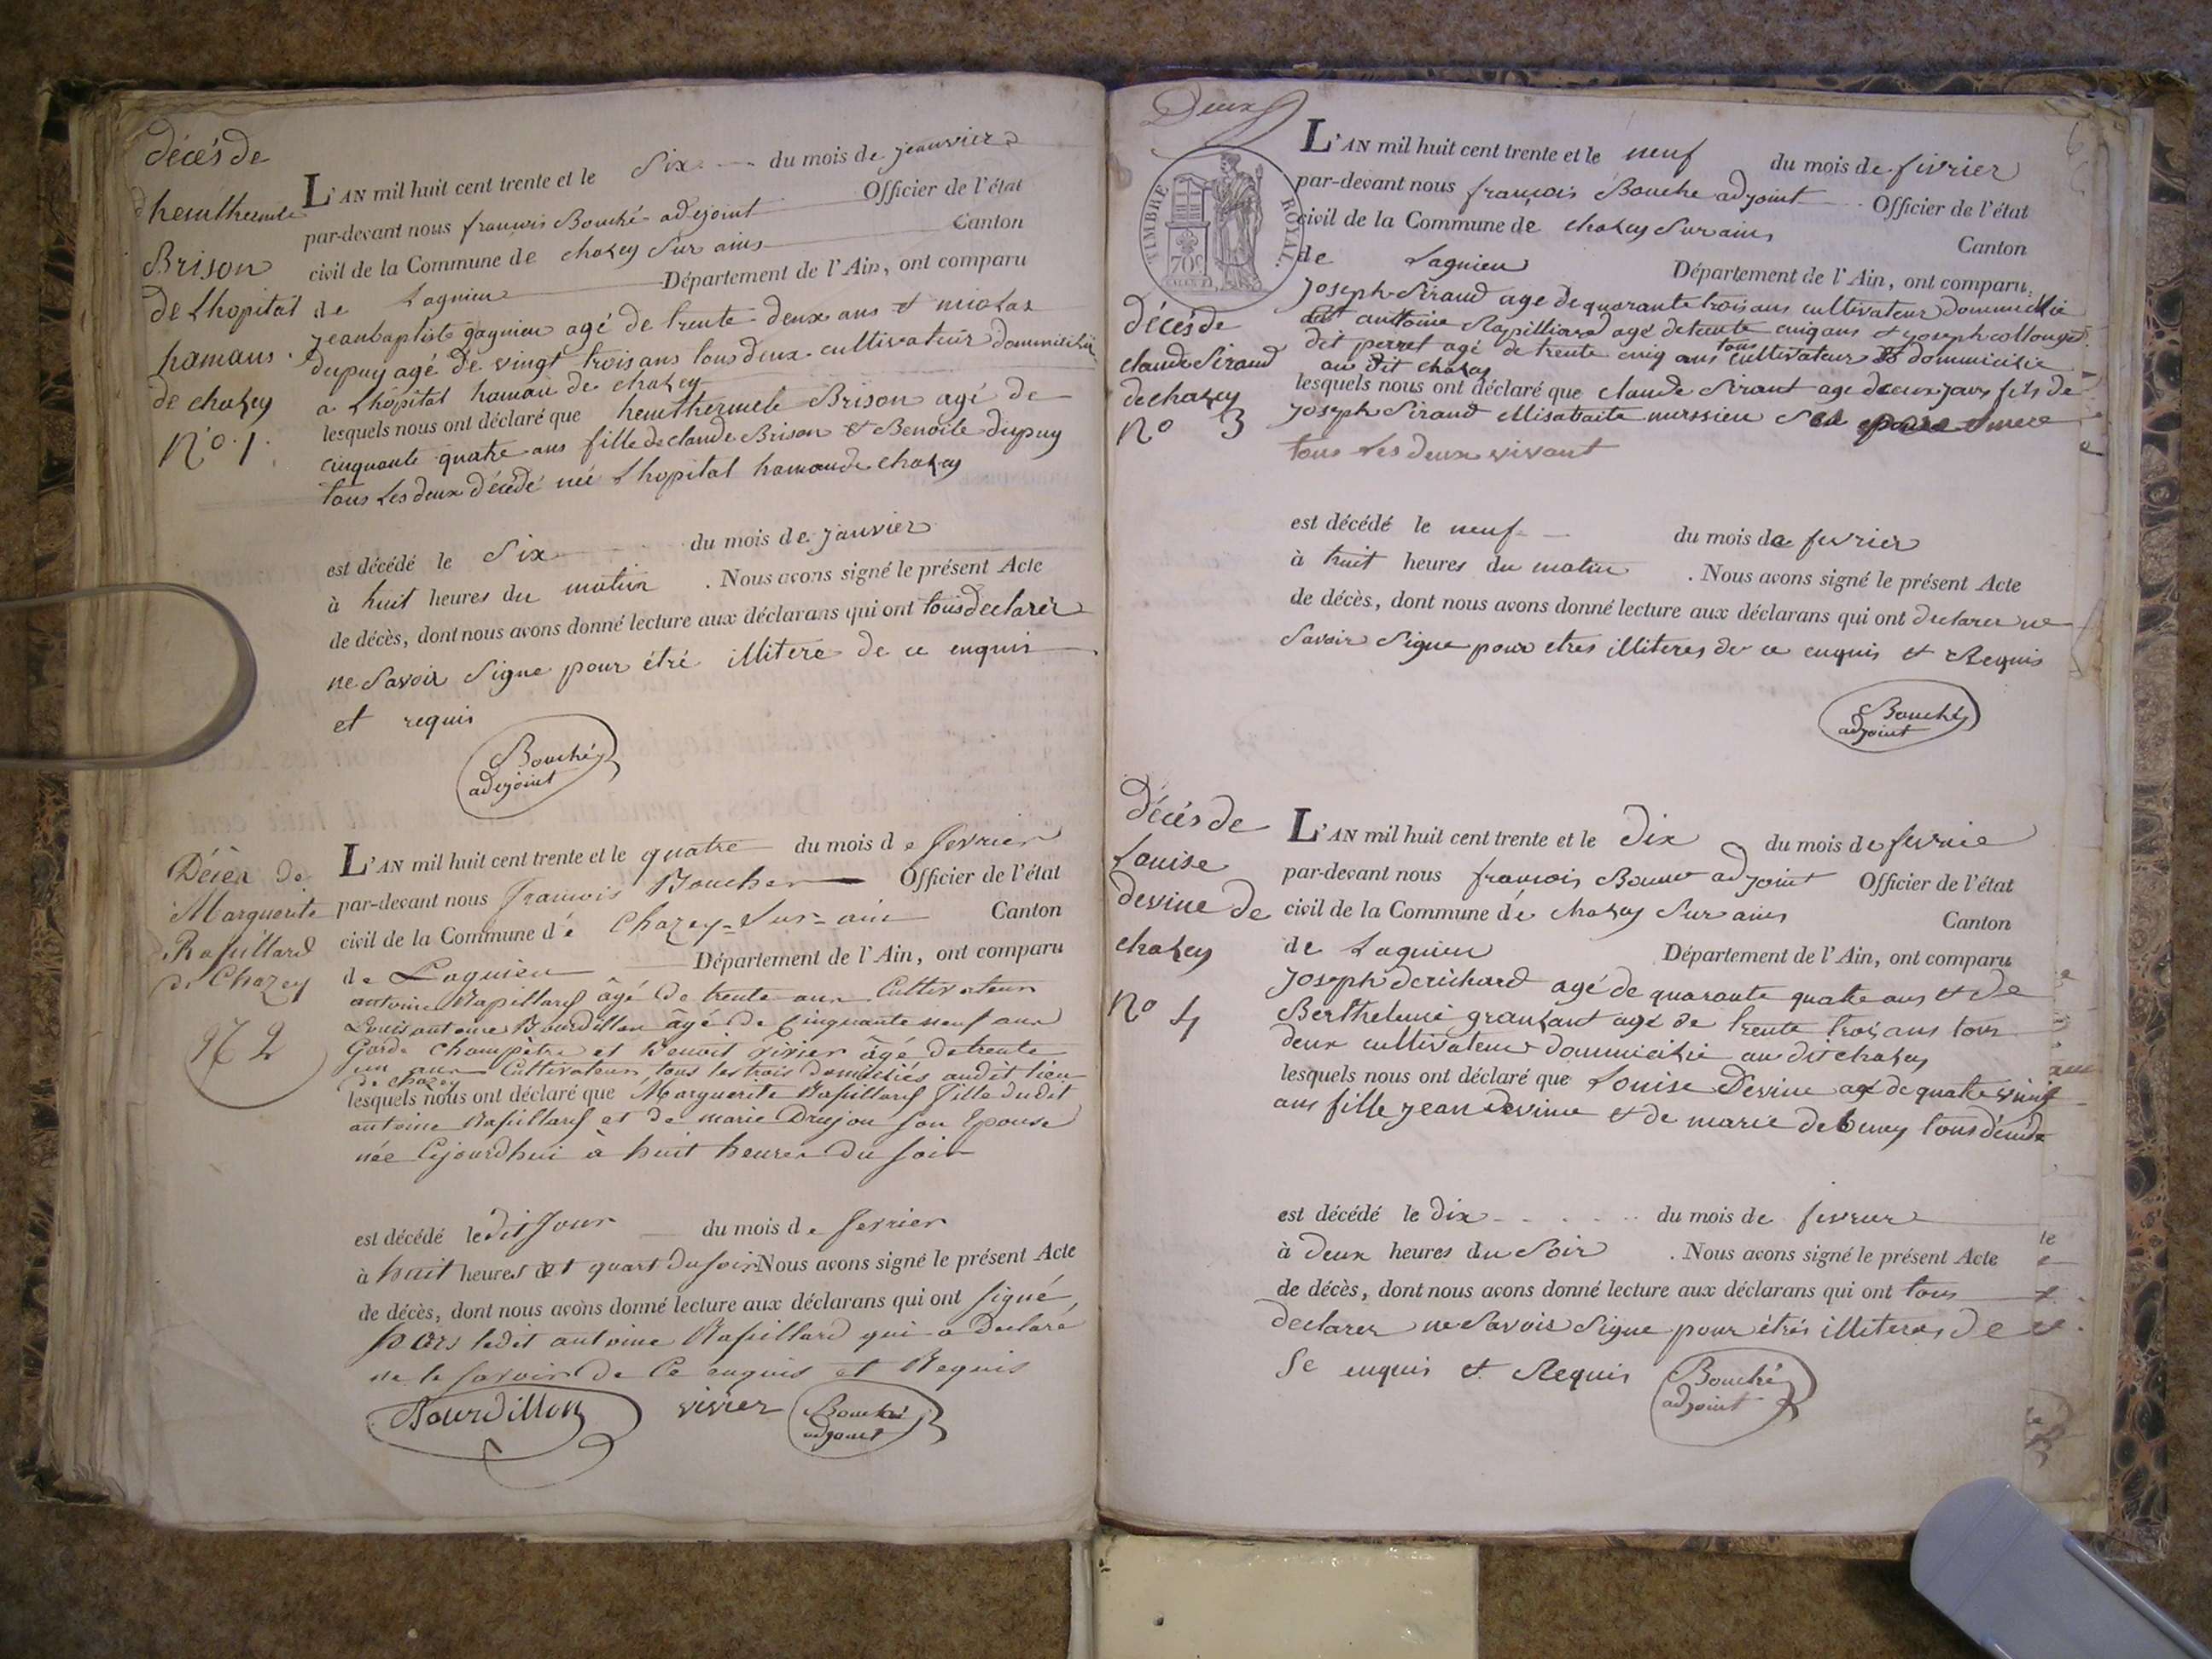 décés de
Brison
de Lhopital
hamans
de chazey
N° 1.
L'AN mil huit cent trente et le Six du mois de jeanvier
par-devant nous francois Bouché adejoint Officier de l'état
civil de la Commune de chazey Sur ains Canton
de Lagnieu Département de l'Ain, ont comparu
jeanbaptiste gagnieu agé de trente deux ans et nicolas
dupuy agé de vingt trois ans tous deux cultivateur dommicilié
a Lhopital hamau de chazey
lesquels nous ont déclaré que Brison agé de
cinquante quatre ans fille de claude Brison et Benoite dupuy
tous Les deux décédé née Lhopital hamau de chazey
est décédé le Six du mois de janvier
à huit heures du matin . Nous avons signé le présent Acte
de décès, dont nous avons donné lecture aux déclarans qui ont tous declarér
ne Savoir Signe pour étré illitere de ce enquis
et requis
Bouché
adejoint
Décès de
Marguerite
Rapillard
de Chazey
N° 2
L'AN mil huit cent trente et le quatre du mois de fevrier
par-devant nous francois Boucher Officier de l'état
civil de la Commune dé Chazey-Sur-ain Canton
de Lagnieu Département de l'Ain, ont comparu
antoine Rapillard âgé de trente ans Cultivateur
Louis antoine Bourdillon âgé de Cinquante neuf ans
Garde Champètre et Benoit vivier âgé de trente
un ans Cultivateur tous les trois domiciliés audit lieu
de chazey
lesquels nous ont déclaré que Marguerite Rapillard fille dudit
antoine Rapillard et de marie Drujon son Epouse
née Cejourdhui à huit heures du soir
est décédé le dit Jour du mois de fevrier
à huit heures et quart du soir Nous avons signé le présent Acte
de décès, dont nous avons donné lecture aux déclarans qui ont signé
hors ledit antoine Rapillard qui a declaré
ne le savoir de Ce enquis et Requis
Bourdillon vivier Bouché
adjoint
Deux
6
TIMBRE ROYAL.
70c
L'AN mil huit cent trente et le neuf du mois de fivrier
par-devant nous francois Bouche adjoint Officier de l'état
civil de la Commune de chazey Sur ains
Canton
de Lagnieu Département de l'Ain, ont comparu
Joseph Siraud age de quarante trois ans cultivateur dommicilie
antoine Rapilliard agé de trente cinq ans et joseph collonge
dit perret agé de trente cinq ans tous cultivateur dommicilie
au dit chazey
décés de
claude Siraud
de chazey
N° 3
lesquels nous ont déclaré que claude Siraut age deux jours fils de
Joseph Siraud
tous Les deux vivant
est décédé le neuf du mois de fevrier
à huit heures du matin . Nous avons signé le présent Acte
de décès, dont nous avons donné lecture aux déclarans qui ont declarer ne
Savoir Signe pour etres illiteres de ce enquis et Requis
Bouché
adjoint
Décés de
Louise
devine de
chazey
N° 4
L'AN mil huit cent trente et le dix du mois de fevrie
par-devant nous francois adjoint Officier de l'état
civil de la Commune dé chazey Sur ains Canton
de Lagnieu Département de l'Ain, ont comparu
Joseph derichard agé de quarante quatre ans et de
agé de trente trois ans tous
deux cultivateur dommicilie au dit chazey
lesquels nous ont déclaré que Louise Devine agé de quatre vingt
ans fille jean devine et de marie tous décédé
est décédé le dix du mois de fevrier
à deux heures du Soir . Nous avons signé le présent Acte
de décès, dont nous avons donné lecture aux déclarans qui ont tous
declarer ne Savoir Signe pour étrés illiteres de
Se enquis et Requis Bouché
adjoint